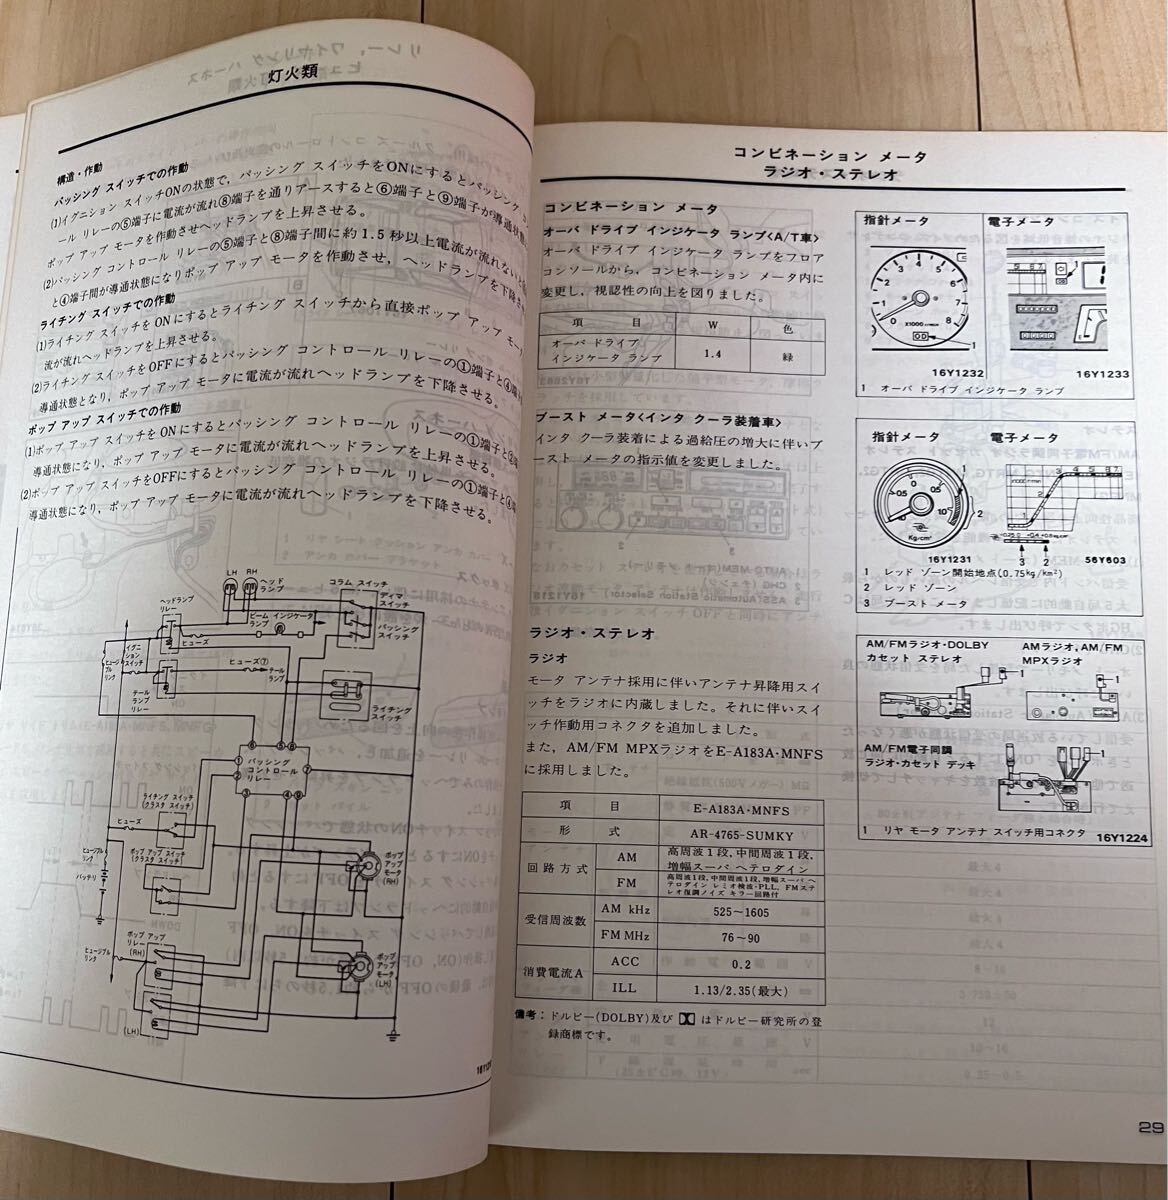 灯火類
構造・作動
パッシング スイッチでの作動
(1)イグニション スイッチONの状態で，パッシング スイッチをONにするとパッシング コ
ール リレーの⑤端子に電流が流れ⑧端子を通りアースすると⑥端子と⑨端子が導通状態
ポップ アップ モータを作動させヘッドランプを上昇させる。
(2)パッシング コントロール リレーの⑤端子と⑧端子間に約1.5秒以上電流が流れない
と④端子間が導通状態になりポップ アップ モータを作動させ，ヘッドランプを下降させ
ライチング スイッチでの作動
(1)ライチング スイッチをONにするとライチング スイッチから直接ポップ アップ モー
流が流れヘッドランプを上昇させる。
(2)ライチング スイッチをOFFにするとパッシング コントロール リレーの①端子と④
導通状態となり，ポップ アップ モータに電流が流れヘッドランプを下降させる。
ポップ アップ スイッチでの作動
(1)ポップ アップ スイッチをONにするとパッシング コントロール リレーの①端子と
導通状態になり，ポップ アップ モータに電流が流れヘッドランプを上昇させる。
(2)ポップ アップ スイッチをOFFにするとパッシング コントロール リレーの①端子と④
導通状態になり，ポップ アップ モータに電流が流れヘッドランプを下降させる。
LH RH
ヘッド
ランプ
コラム スイッチ
ディマ
スイッチ
パッシング
スイッチ
ヘッドランプ
リレー
ビーム インジケータ
ランプ
ヒューズ
イグニ
ション
スイッチ
ヒュージブル
リンク
ヒューズ⑦
テール
ランプ
テール
ランプ
リレー
ライチング
スイッチ
⑥ ⑤ ⑧
① ②
パッシング
コントロール
リレー
⑦
③ ④ ⑨
ライチング スイッチ
(クラスタ スイッチ)
ヒューズ
ポップ アップ スイッチ
(クラスタ スイッチ)
ヒュージブル
リンク
バッテリ
ポップ
アップ
モータ
(RH)
ポップ アップ
リレー
(RH)
ヒュージブル
リンク
ポップ
アップ
モータ
(LH)
(LH)
コンビネーション メータ
ラジオ・ステレオ
コンビネーション メータ
オーバ ドライブ インジケータ ランプ<A/T車>
オーバ ドライブ インジケータ ランプをフロア
コンソールから，コンビネーション メータ内に
変更し，視認性の向上を図りました。
項 目 W 色
オーバ ドライブ
インジケータ ランプ 1.4 緑
ブースト メータ<インタ クーラ装着車>
インタ クーラ装着による過給圧の増大に伴いブ
ースト メータの指示値を変更しました。
ラジオ・ステレオ
ラジオ
モータ アンテナ採用に伴いアンテナ昇降用スイ
ッチをラジオに内蔵しました。それに伴いスイ
ッチ作動用コネクタを追加しました。
また，AM/FM MPXラジオをE-A183A・MNFS
に採用しました。
項 目 E-A183A・MNFS
形 式 AR-4765-SUMKY
回路方式 AM 高周波1段，中間周波1段，
増幅スーパ ヘテロダイン
FM 高周波1段，中間周波1段，増幅スーパ ヘ
テロダイン レミオ検波・PLL，FMステ
レオ復調ノイズ キラー回路付
受信周波数 AM kHz 525～1605
FM MHz 76～90
消費電流A ACC 0.2
ILL 1.13/2.35(最大)
備考：ドルビー(DOLBY)及び はドルビー研究所の登
録商標です。
指針メータ 電子メータ
0 1 2 3 4 5 6 7 8
X1000 r/min
OD
1
16Y1232 16Y1233
1 オーバ ドライブ インジケータ ランプ
指針メータ 電子メータ
0.5 0 0.5 1.0
Kg/cm²
1
2
16Y1231
3 2
56Y603
1 レッド ゾーン開始地点(0.75kg/km²)
2 レッド ゾーン
3 ブースト メータ
AM/FMラジオ・DOLBY
カセット ステレオ
1
AMラジオ, AM/FM
MPXラジオ
1
AM/FM電子同調
ラジオ・カセット デッキ
1
1 リヤ モータ アンテナ スイッチ用コネクタ 16Y1224
29